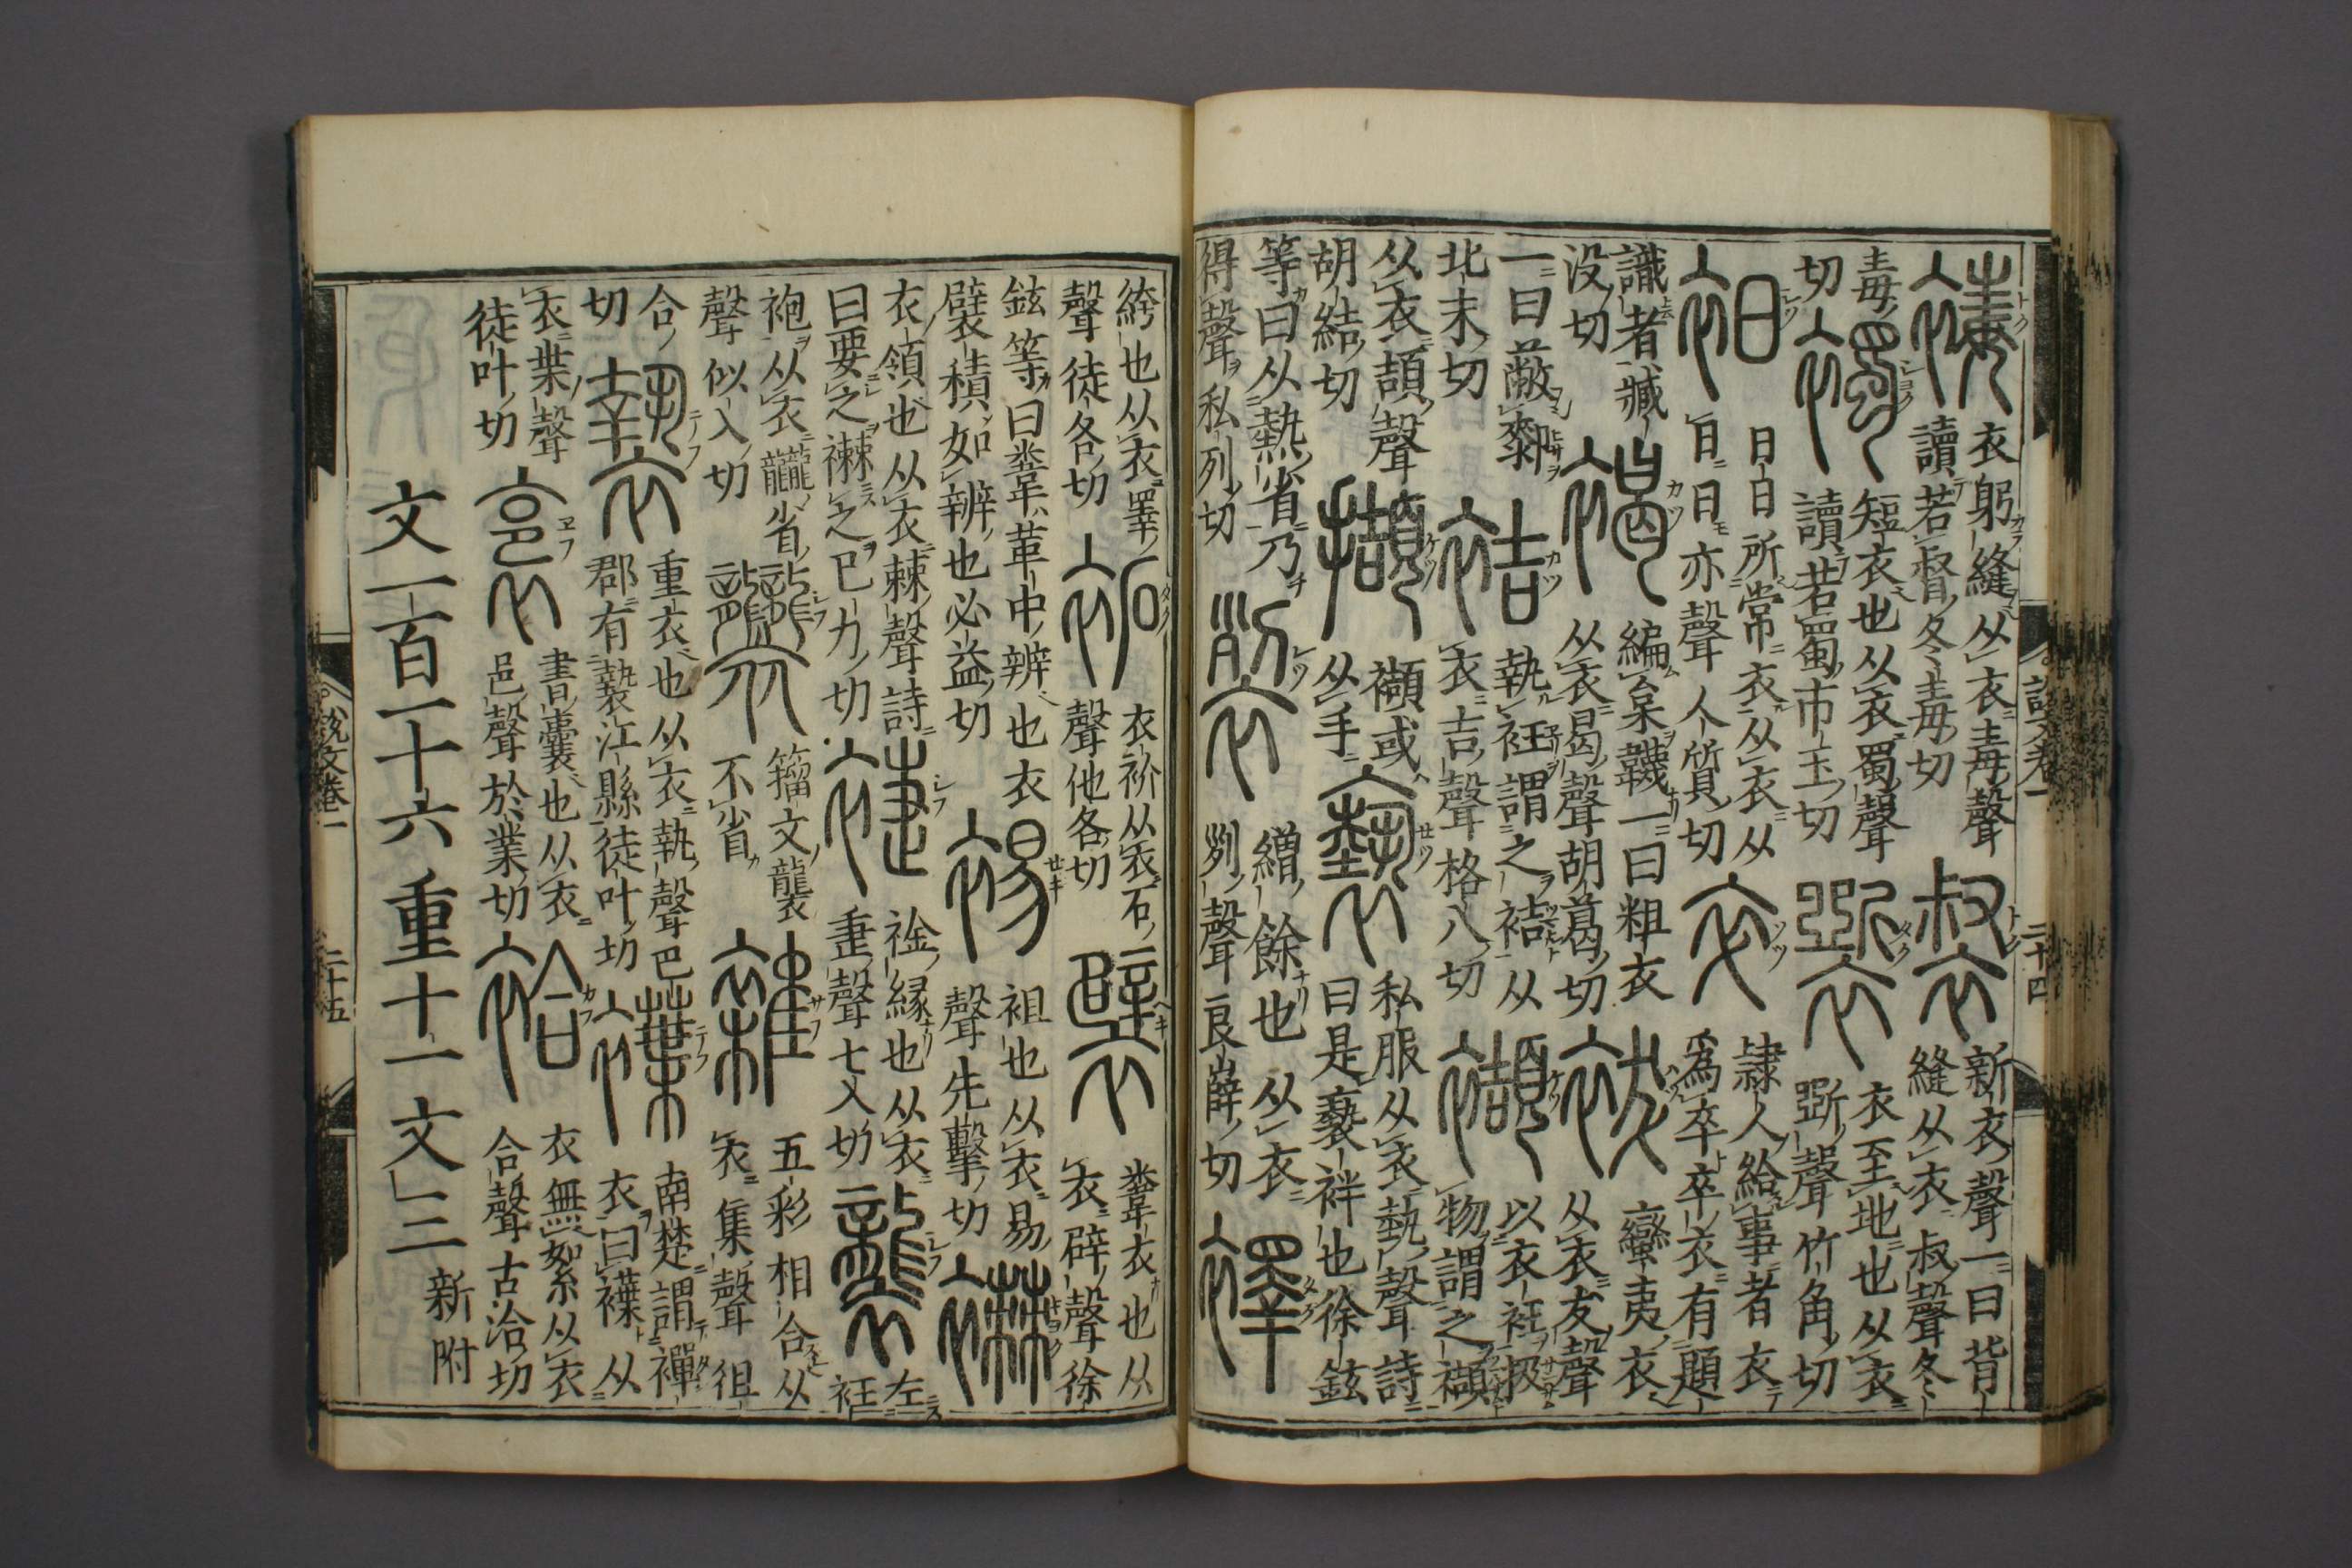 𧞇衣躬縫从衣毒聲讀若督冬毒切裻新衣聲一曰背縫从衣叔聲冬
毒切襡短衣也从衣蜀聲讀若蜀市玉切𧝎衣至地也从衣斲聲竹角切
衵日日所常衣从衣从日日亦聲人質切卒隸人給事者衣為卒卒衣有題
識者臧没切褐編枲韤一曰粗衣从衣曷聲胡葛切袚蠻夷衣从衣犮聲
一曰蔽厀北末切袺執衽謂之袺从衣吉聲格八切襭以衣衽扱物謂之襭
从衣頡聲胡結切擷襭或从手褻私服从衣埶聲詩曰是褻袢也徐鉉
等曰从熱省乃得聲私列切裂繒餘也从衣列聲良薛切襗
説文卷一 二十四
絝也从衣睪聲徒各切袥衣䘳从衣石聲他各切襞韏衣也从衣辟聲徐
鉉等曰韏革中辨也衣襞積如辨也必益切裼袒也从衣易聲先擊切襋
衣領也从衣棘聲詩曰要之襋之已力切䙿緣也从衣疌聲七入切襲左衽
袍从衣龖省聲似入切籀文襲不省雜五彩相合从衣集聲徂
合切褺重衣也从衣執聲巴郡有褺江縣徒叶切褋南楚謂襌衣曰褋从
衣枼聲徒叶切裛書囊也从衣邑聲於業切袷衣無絮从衣合聲古洽切
文一百一十六 重十一 文三新附
説文卷一 二十五